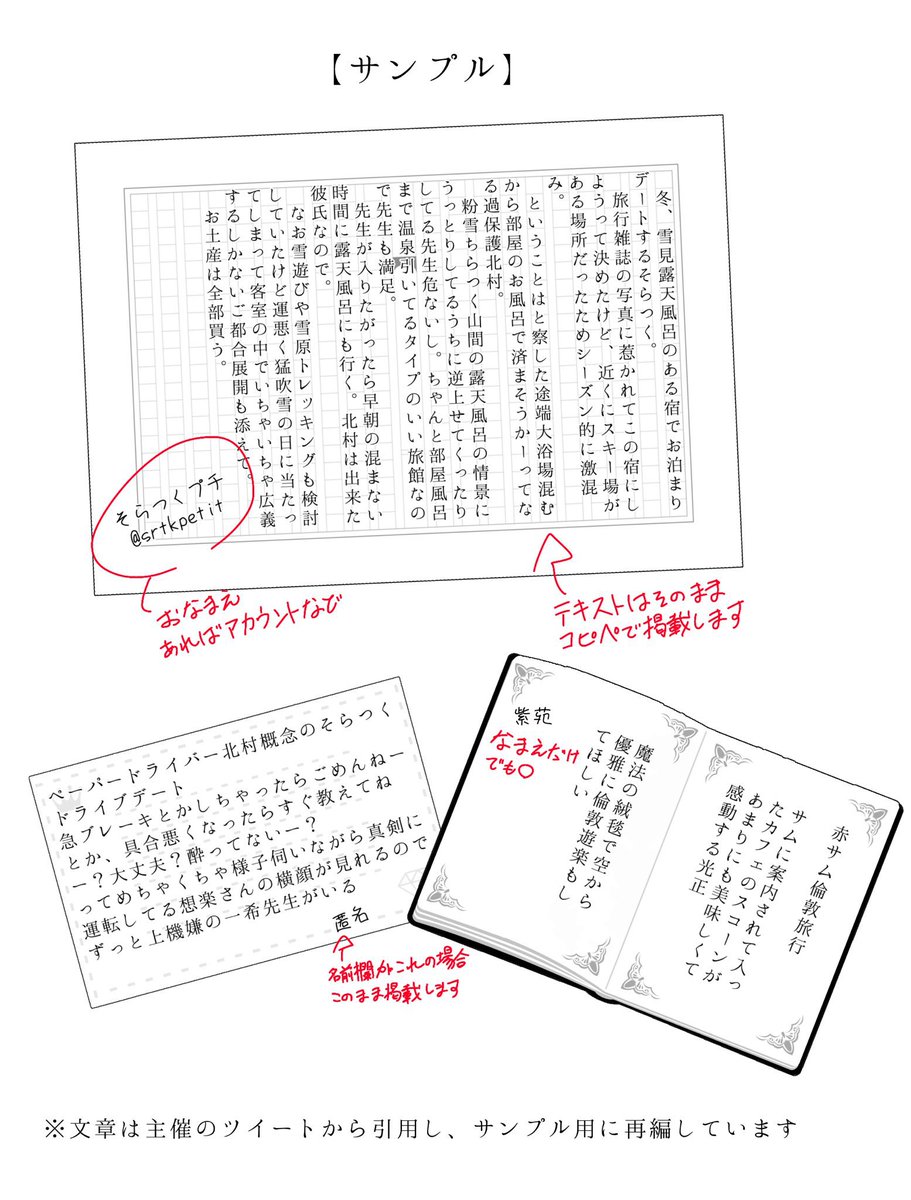 【サンプル】
冬、雪見露天風呂のある宿でお泊まり
デートするそらつく。
旅行雑誌の写真に惹かれてこの宿にし
ようって決めたけど、近くにスキー場が
ある場所だったためシーズン的に激混
み。
ということはと察した途端大浴場混む
から部屋のお風呂で済まそうかーってな
る過保護北村。
粉雪ちらつく山間の露天風呂の情景に
うっとりしてるうちに逆上せてくったり
してる先生危ないし。ちゃんと部屋風呂
まで温泉引いてるタイプのいい旅館なの
で先生も満足。
先生が入りたがったら早朝の混まない
時間に露天風呂にも行く。北村は出来た
彼氏なので。
なお雪遊びや雪原トレッキングも検討
していたけど運悪く猛吹雪の日に当たっ
てしまって客室の中でいちゃいちゃ広義
するしかないご都合展開も添えて。
お土産は全部買う。
そらつくプチ
@srtkpetit
おなまえ
あればアカウントなど
テキストはそのまま
コピペで掲載します
ペーパードライバー北村概念のそらつく
ドライブデート
急ブレーキとかしちゃったらごめんねー
とか、具合悪くなったらすぐ教えてね
ー？大丈夫？酔ってないー？
ってめちゃくちゃ様子伺いながら真剣に
運転してる想楽さんの横顔が見れるので
ずっと上機嫌の一希先生がいる
匿名
名前欄がこれの場合
このまま掲載します
赤サム倫敦旅行
サムに案内されて入っ
たカフェのスコーンが
あまりにも美味しくて
感動する光正
魔法の絨毯で空から
優雅に倫敦遊楽もし
てほしい
紫苑
なまえだけ
でも○
※文章は主催のツイートから引用し、サンプル用に再編しています